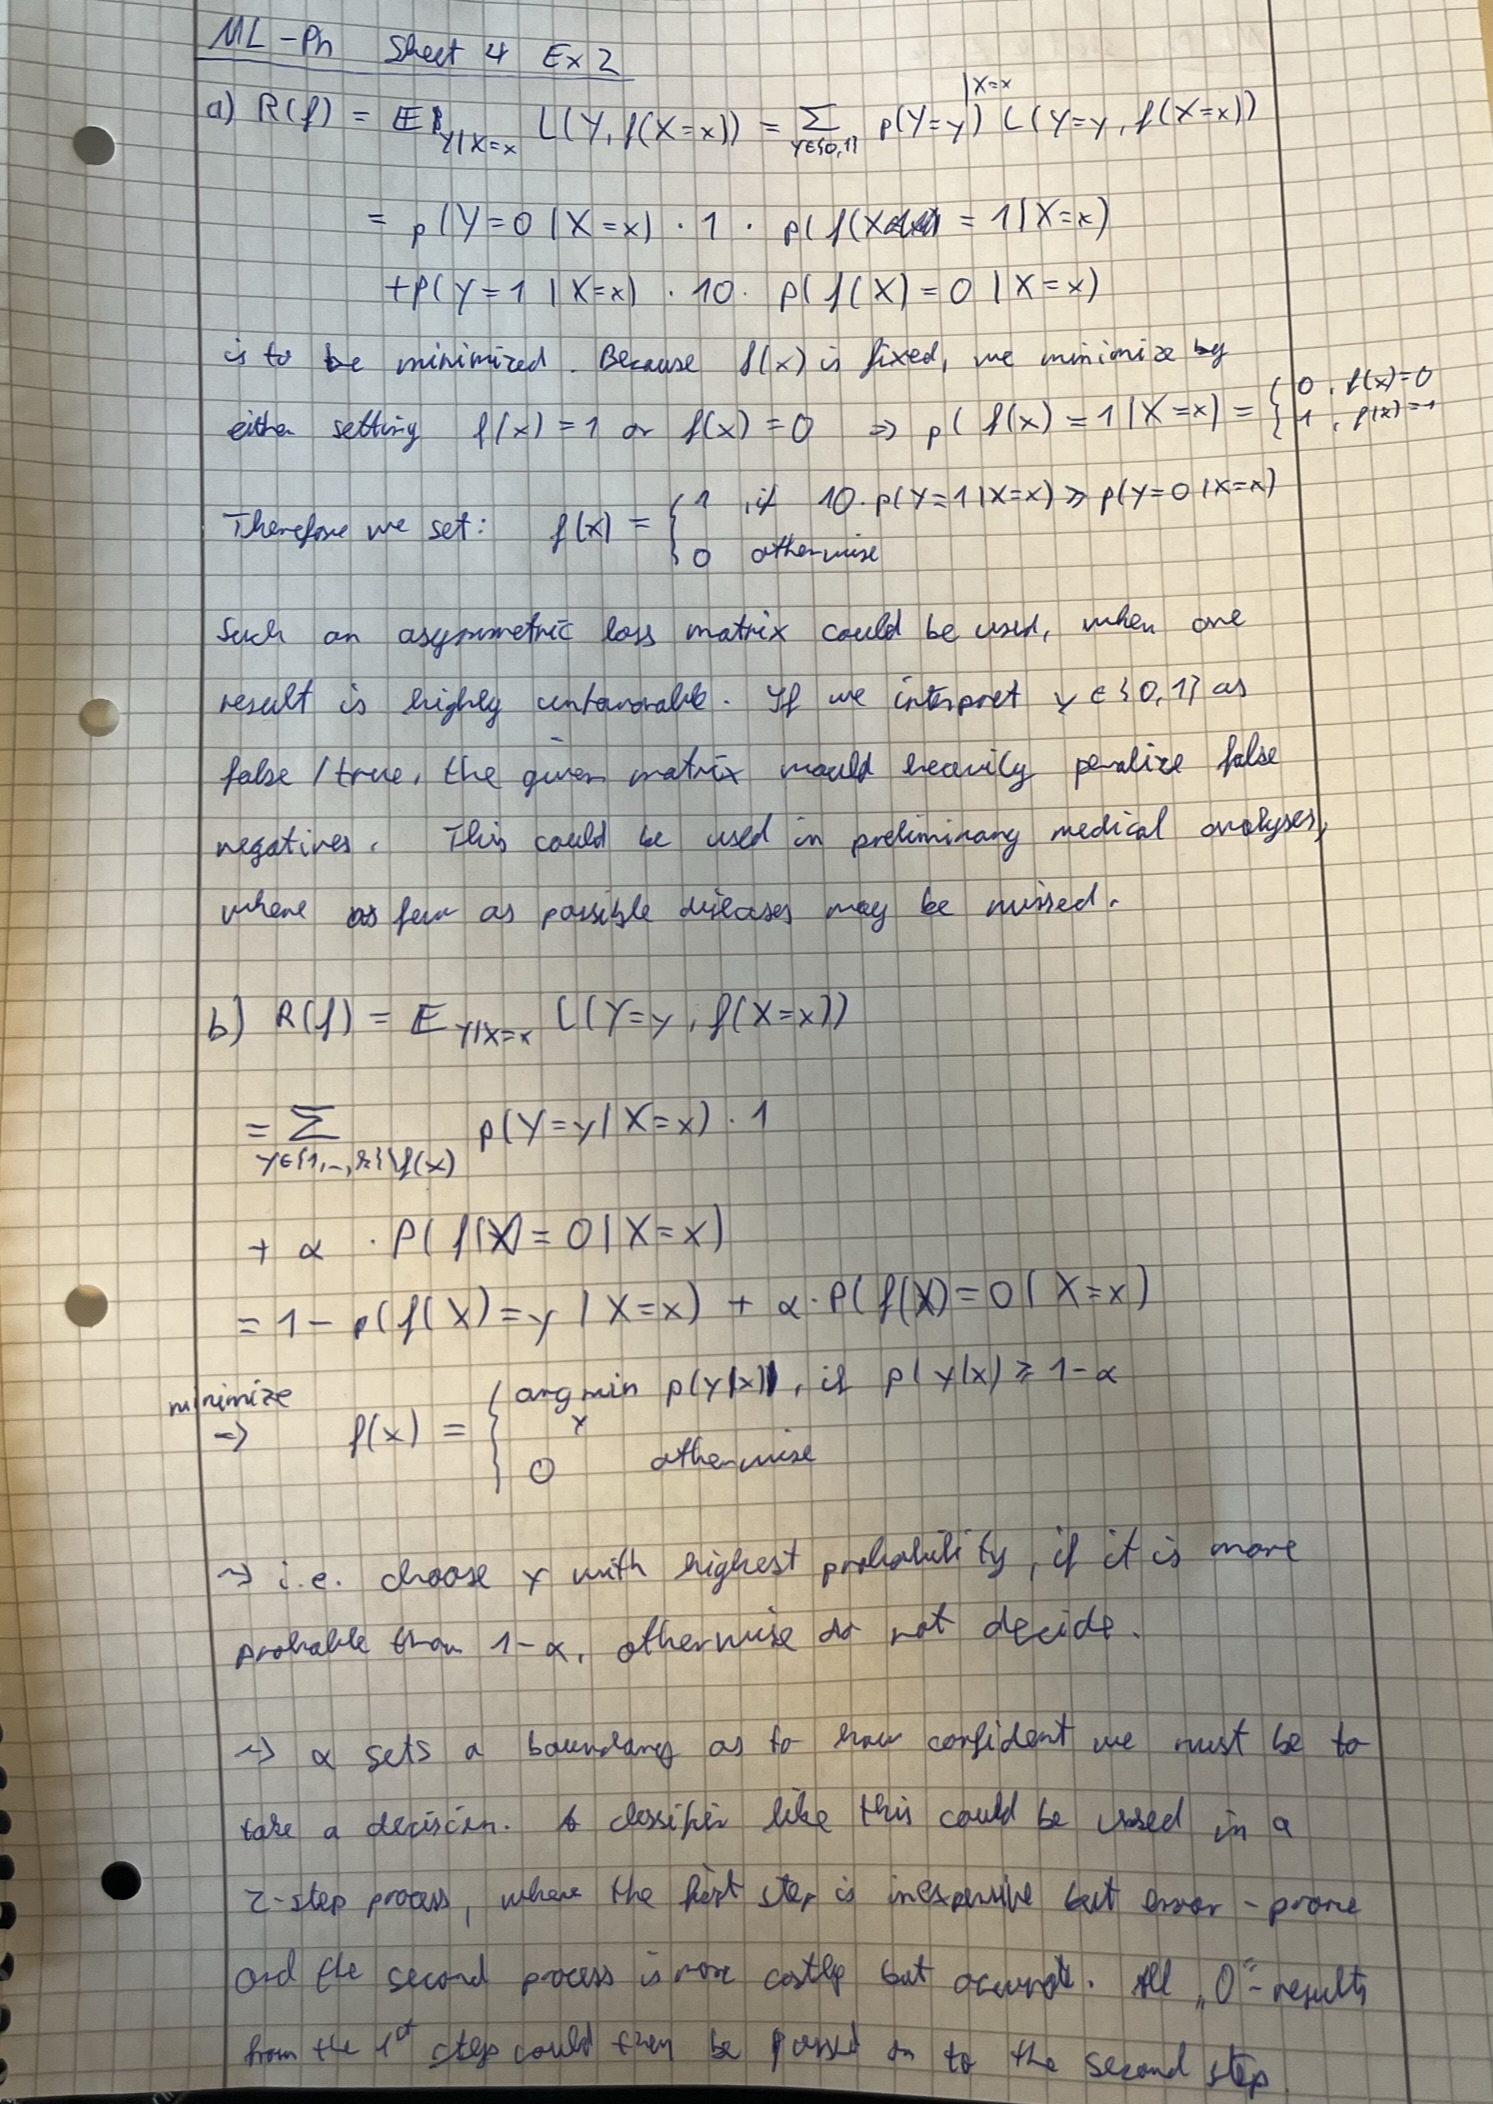 ML-Ph Sheet 4 Ex 2
|X=x
a) R(f) = E_{Y|X=x} L(Y, f(X=x)) = Σ_{y∈{0,1}} p(Y=y) L(Y=y, f(X=x))
= p(Y=0|X=x) · 1 · p(f(X) = 1|X=x)
+p(Y=1|X=x) · 10 · p(f(X)=0|X=x)
is to be minimized. Because f(x) is fixed, we minimize by
either setting f(x)=1 or f(x)=0 ⇒ p(f(x)=1|X=x) = { 0, f(x)=0
1, f(x)=1
Therefore we set: f(x) = { 1 , if 10·p(Y=1|X=x) ≥ p(Y=0|X=x)
0 otherwise
Such an asymmetric loss matrix could be used, when one
result is highly unfavorable. If we interpret y∈{0,1} as
false/true, the given matrix would heavily penalize false
negatives. This could be used in preliminary medical analyses,
where as few as possible diseases may be missed.
b) R(f) = E_{Y|X=x} L(Y=y, f(X=x))
= Σ_{y∈{1,-,k}\f(x)} p(Y=y|X=x) · 1
+ α · P(f(X)=0|X=x)
= 1 - p(f(X)=y|X=x) + α·P(f(X)=0|X=x)
minimize
→ f(x) = { arg min_y p(y|x), if p(y|x) ≥ 1-α
0 otherwise
~> i.e. choose y with highest probability, if it is more
probable than 1-α, otherwise do not decide.
~> α sets a boundary as to how confident we must be to
take a decision. A classifier like this could be used in a
2-step process, where the first step is inexpensive but error-prone
and the second process is more costly but accurate. All „0"-results
from the 1st step could then be passed on to the second step.